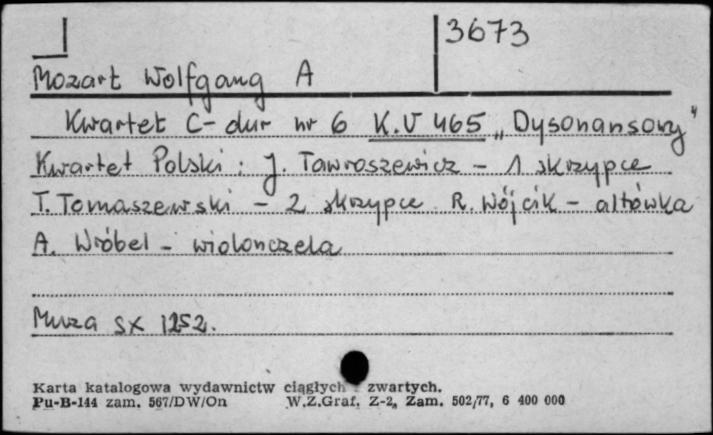 3673
Mozart Wolfgang A
Kwartet C-dur nr 6 K.V 465 „Dysonansowy"
Kwartet Polski: J. Tawroszewicz - 1 skrzypce
T. Tomaszewski - 2 skrzypce R. Wójcik - altówka
A. Wróbel - wiolonczela
Muza SX 1252.
Karta katalogowa wydawnictw ciągłych i zwartych.
Pu-B-144 zam. 567/DW/On W.Z.Graf. Z-2, Zam. 502/77, 6 400 000